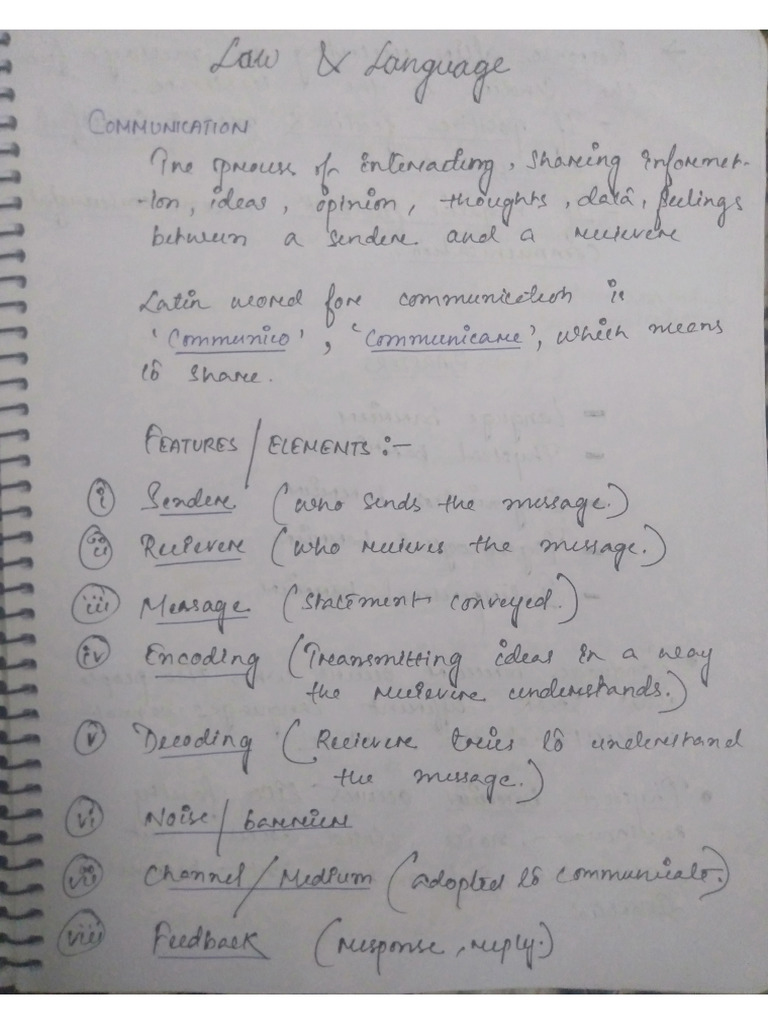 Law & Language
COMMUNICATION
The process of interacting, sharing informat-
-ion, ideas, opinion, thoughts, data, feelings
between a sender and a reciever
Latin word for communication is
'Communico', 'Communicare', which means
to share.
FEATURES / ELEMENTS :-
i Sender (who sends the message.)
ii Reciever (who recieves the message.)
iii Message (Statement conveyed.)
iv Encoding (Transmitting ideas in a way
the reciever understands.)
v Decoding (Reciever tries to understand
the message.)
vi Noise / barrier
vii Channel / Medium (adopted to communicate.)
viii Feedback (response, reply.)